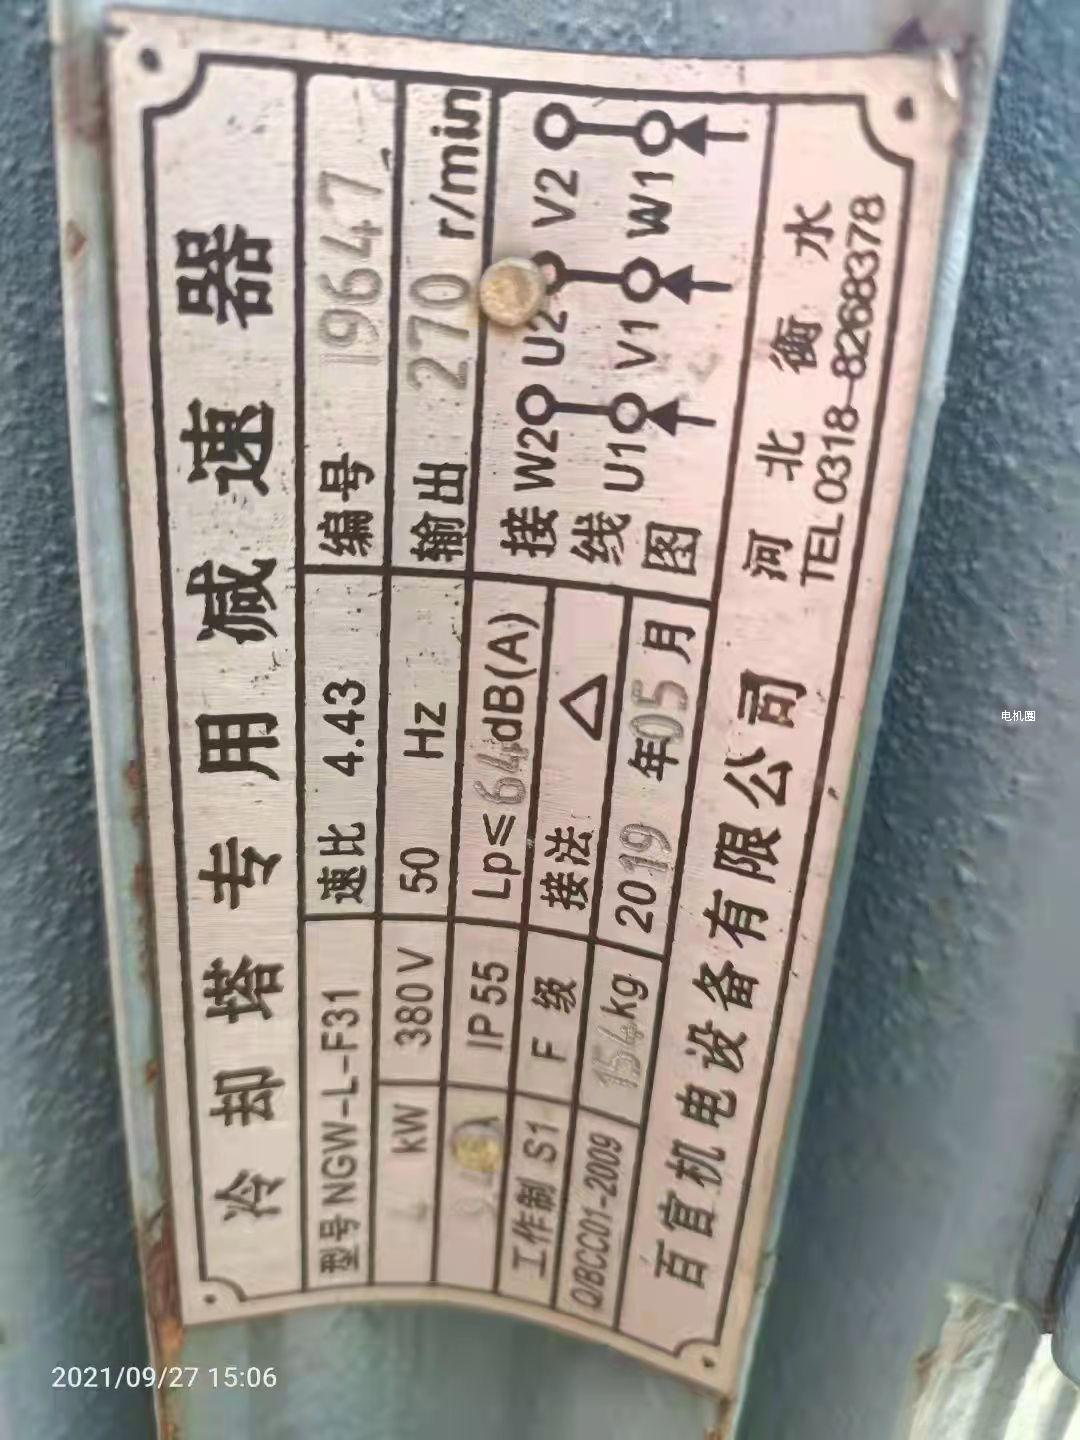 冷却塔专用减速器
型号 NGW-L-F31 速比 4.43 编号 19647
4 kW 380V 50 Hz 输出 270 r/min
IP55 Lp≤64dB(A)
工作制 S1 F 级 接法 △
Q/BCC01-2009 154kg 2019年05月
接线图
W2 U2 V2
U1 V1 W1
百宜机电设备有限公司
河北衡水
TEL 0318-8268378
电机圈
2021/09/27 15:06